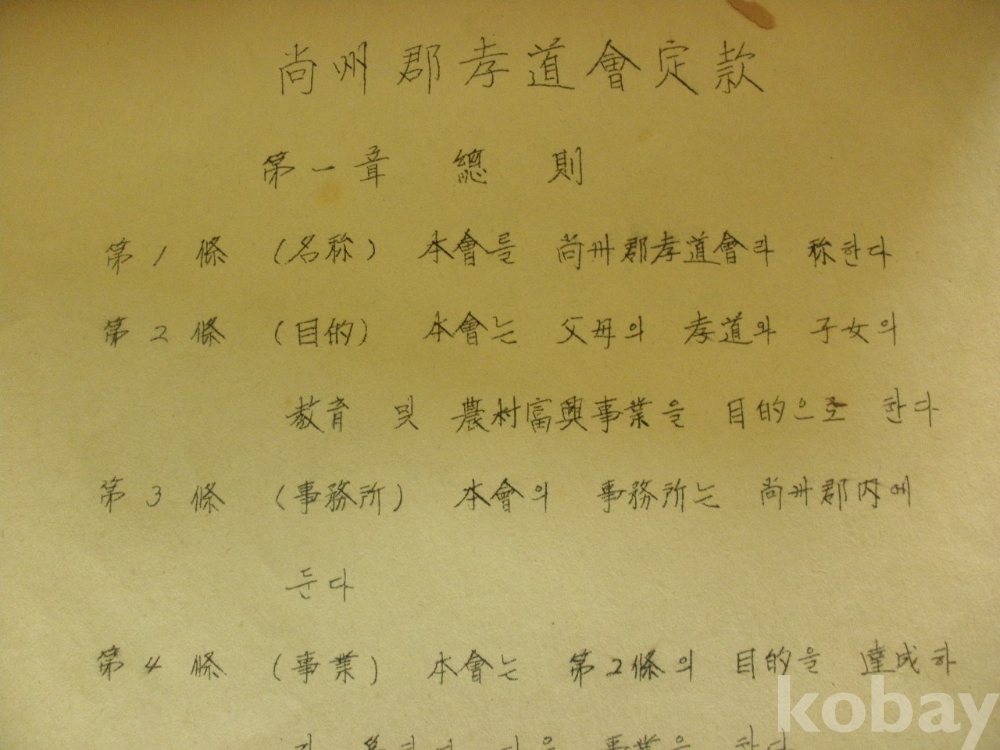 尙州郡孝道會定款
第一章 總則
第1條 (名称) 本會를 尙州郡孝道會라 称한다
第2條 (目的) 本會는 父母의 孝道와 子女의
教育 및 農村富興事業을 目的으로 한다
第3條 (事務所) 本會의 事務所는 尙州郡内에
둔다
第4條 (事業) 本會는 第2條의 目的을 達成하
事業을 한다
kobay